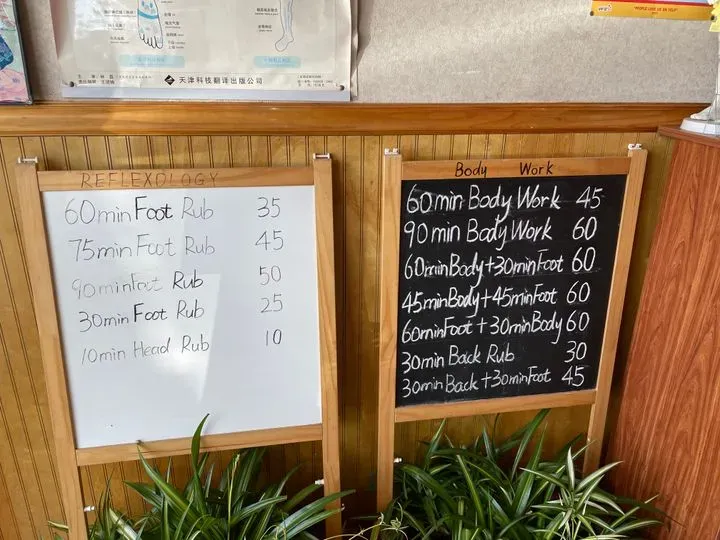 天津科技翻译出版公司
"PEOPLE LIKE US ON YELP"
REFLEXOLOGY
60min Foot Rub 35
75min Foot Rub 45
90min Foot Rub 50
30min Foot Rub 25
10min Head Rub 10
Body Work
60min Body Work 45
90min Body Work 60
60minBody+30minFoot 60
45minBody+45minFoot 60
60minFoot+30minBody 60
30min Back Rub 30
30minBack+30minFoot 45